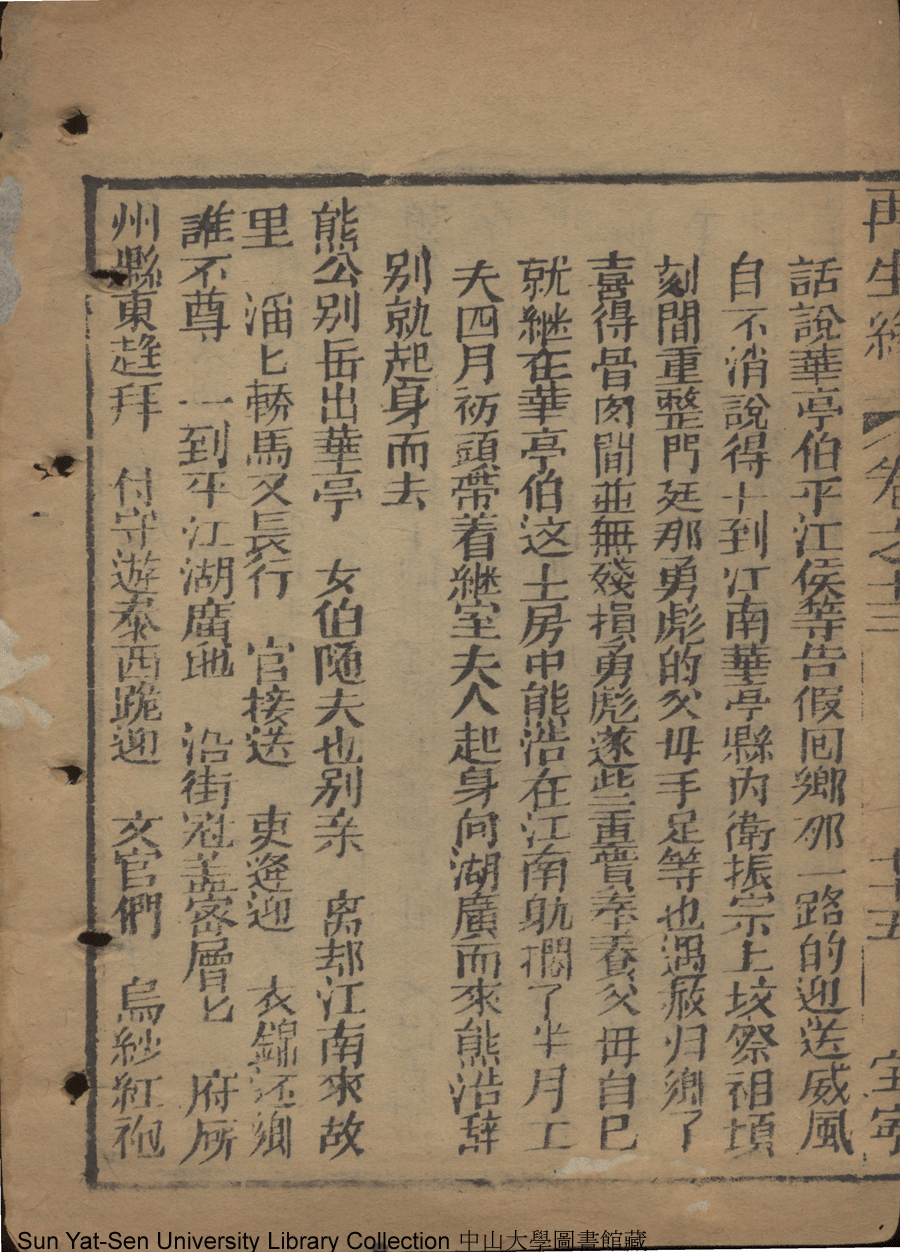 再生緣 卷之十三 十五 宝寧
話說華亭伯平江侯等告假回鄉那一路的迎送威風
自不消說得十到江南華亭縣內衛振宗上坟祭祖頃
刻間重整門廷那勇彪的父母手足等也遇赦归鄉了
喜得骨肉間並無殘損勇彪遂些重賞奉養父毋自己
就継在華亭伯这土房中熊浩在江南躭擱了半月工
夫四月初頭帶着継室夫人起身向湖廣而來熊浩辭
別就起身而去
熊公別岳出華亭 女伯隨夫也別亲 离却江南來故
里 滔匕轎馬又長行 官接送 吏逢迎 衣錦还鄉
誰不尊 一到平江湖廣地 沿街冠盖密層匕 府厛
州縣東趋拜 付守遊泰西跪迎 文官們 烏紗紅袍
Sun Yat-Sen University Library Collection 中山大學圖書館藏